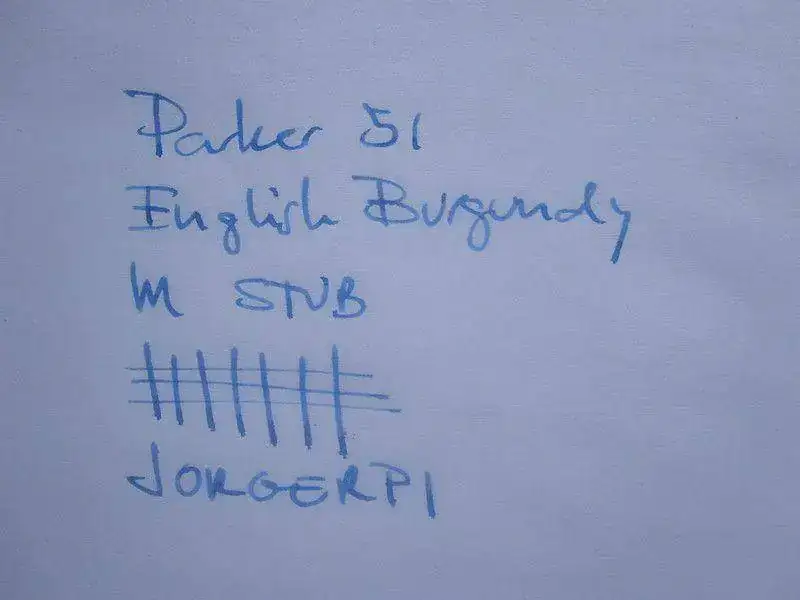 Parker 51
English Burgundy
M STUB
JORGERPI